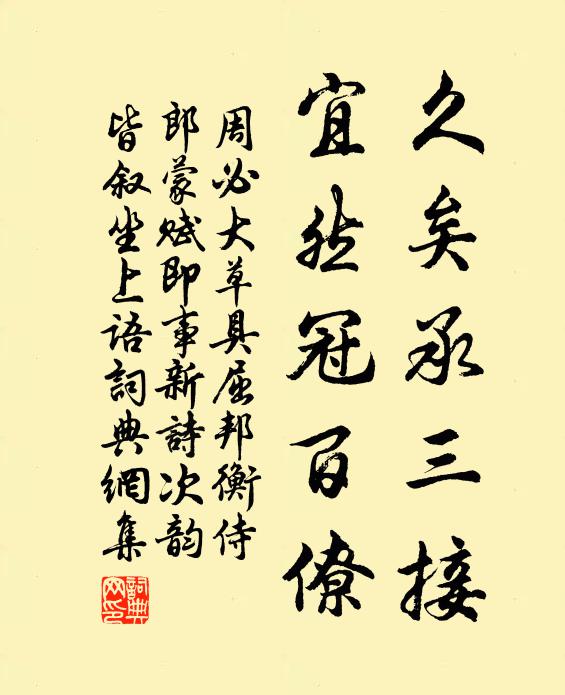 久矣承三接
宜然冠百僚
周必大草具屈邦衡侍
郎蒙赋即事新詩次韵
皆叙坐上语詞典網集
詞典网印